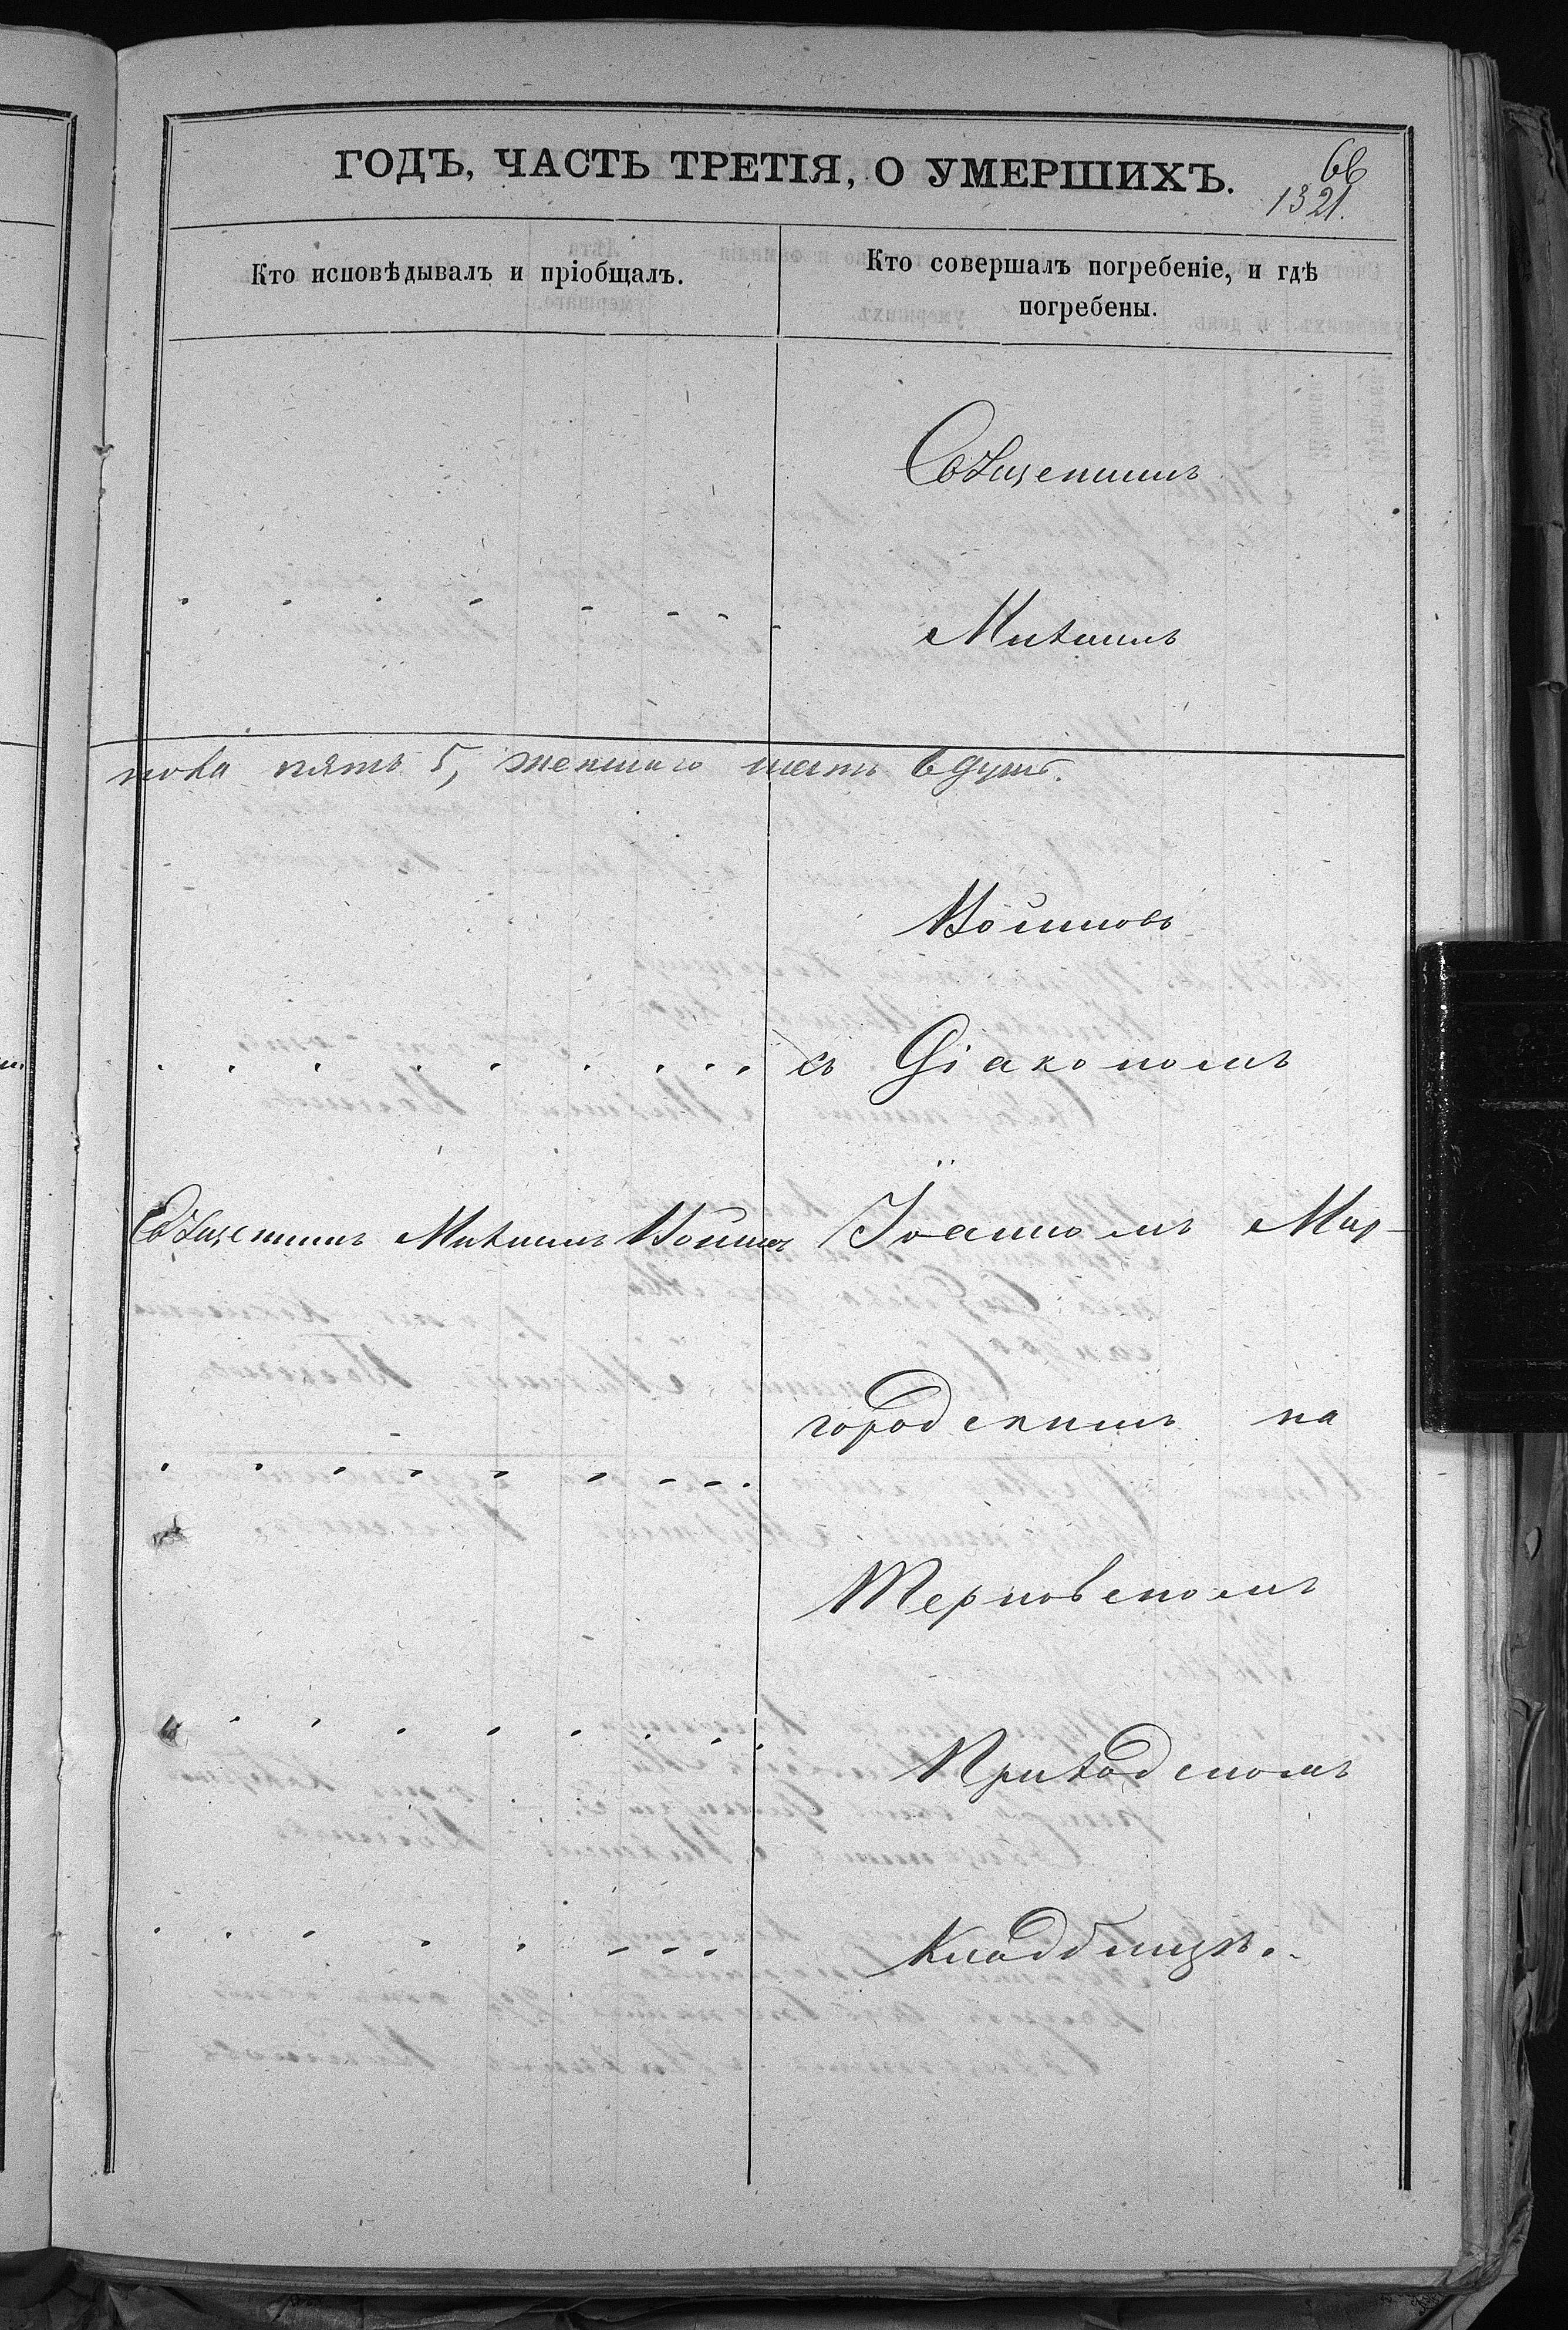 ГОДЪ, ЧАСТЬ ТРЕТІЯ, О УМЕРШИХЪ.
66
1321.
Кто исповѣдывалъ и пріобщалъ.
Кто совершалъ погребеніе, и гдѣ
погребены.
Священникъ
Михаилъ
пола пять 5, женскаго шесть 6 душъ.
Войновъ
съ Діакономъ
Священникъ Михаилъ Войновъ
Іоанномъ Мир-
городскимъ на
Терновскомъ
Приходскомъ
Кладбищѣ.